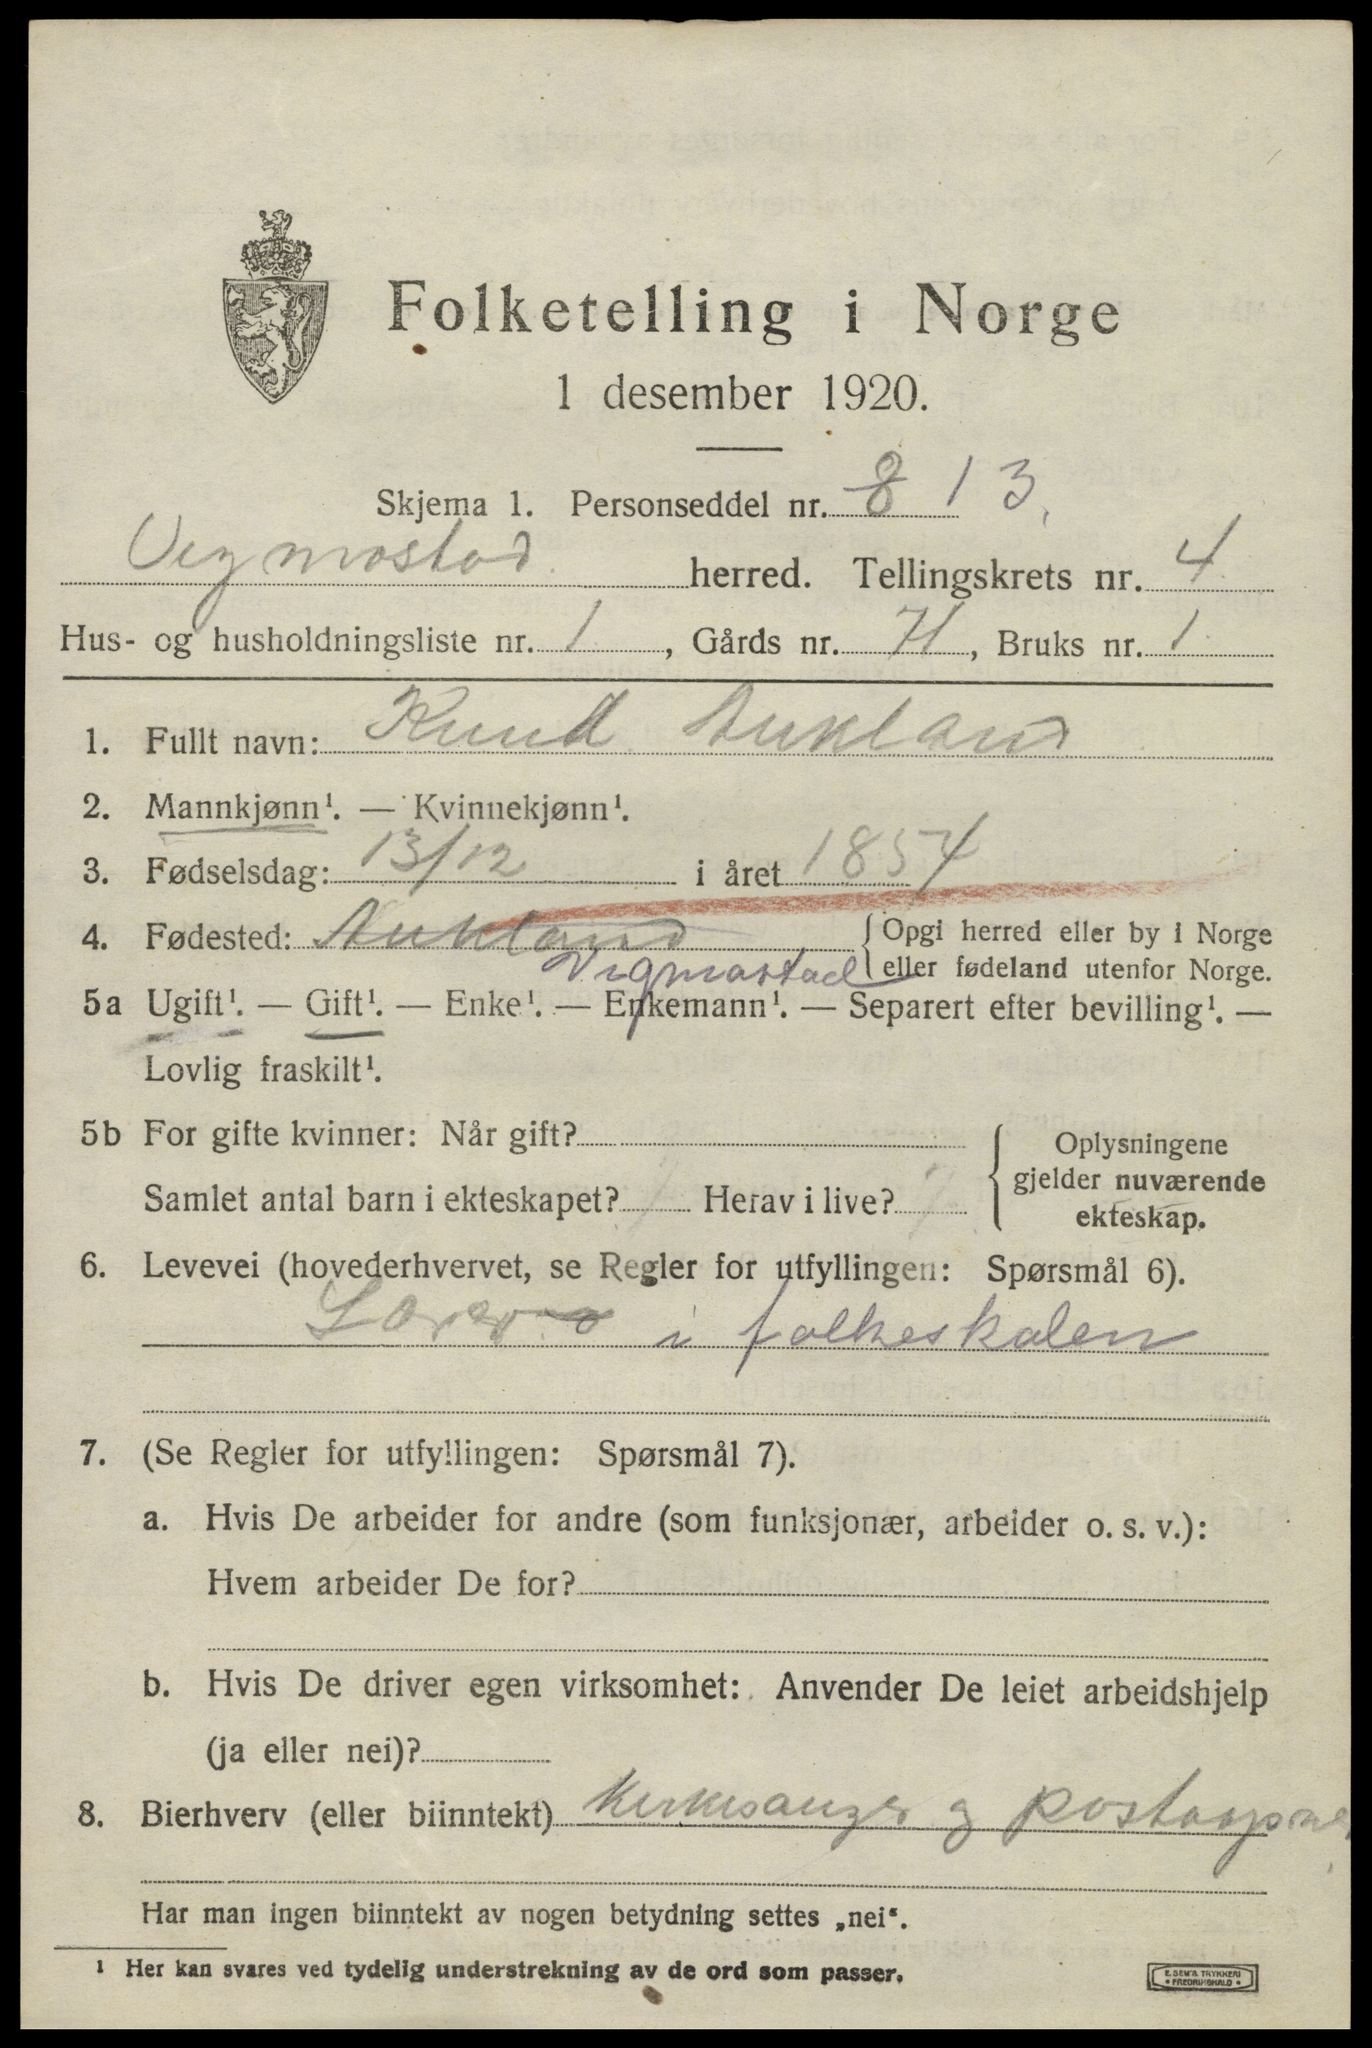 Folketelling i Norge
1 desember 1920.
Skjema 1. Personseddel nr. 8 13.
Vegmostad herred. Tellingskrets nr. 4
Hus- og husholdningsliste nr. 1, Gårds nr. 71, Bruks nr. 1
1. Fullt navn: Knud Aukland
2. Mannkjønn¹. — Kvinnekjønn¹.
3. Fødselsdag: 13/12 i året 1854
4. Fødested: Aukland { Opgi herred eller by i Norge
Vigmostad eller fødeland utenfor Norge.
5a Ugift¹. — Gift¹. — Enke¹. — Enkemann¹. — Separert efter bevilling¹. —
Lovlig fraskilt¹.
5b For gifte kvinner: Når gift? { Oplysningene
gjelder nuværende
ekteskap.
Samlet antal barn i ekteskapet? 7 Herav i live? 7
6. Levevei (hovederhvervet, se Regler for utfyllingen: Spørsmål 6).
Lærer i folkeskolen
7. (Se Regler for utfyllingen: Spørsmål 7).
a. Hvis De arbeider for andre (som funksjonær, arbeider o. s. v.):
Hvem arbeider De for?
b. Hvis De driver egen virksomhet: Anvender De leiet arbeidshjelp
(ja eller nei)?
8. Bierhverv (eller biinntekt) Kirkesanger og postaapner
Har man ingen biinntekt av nogen betydning settes „nei“.
¹ Her kan svares ved tydelig understrekning av de ord som passer.
E. SEM'S TRYKKERI
• FREDRIKSHALD •